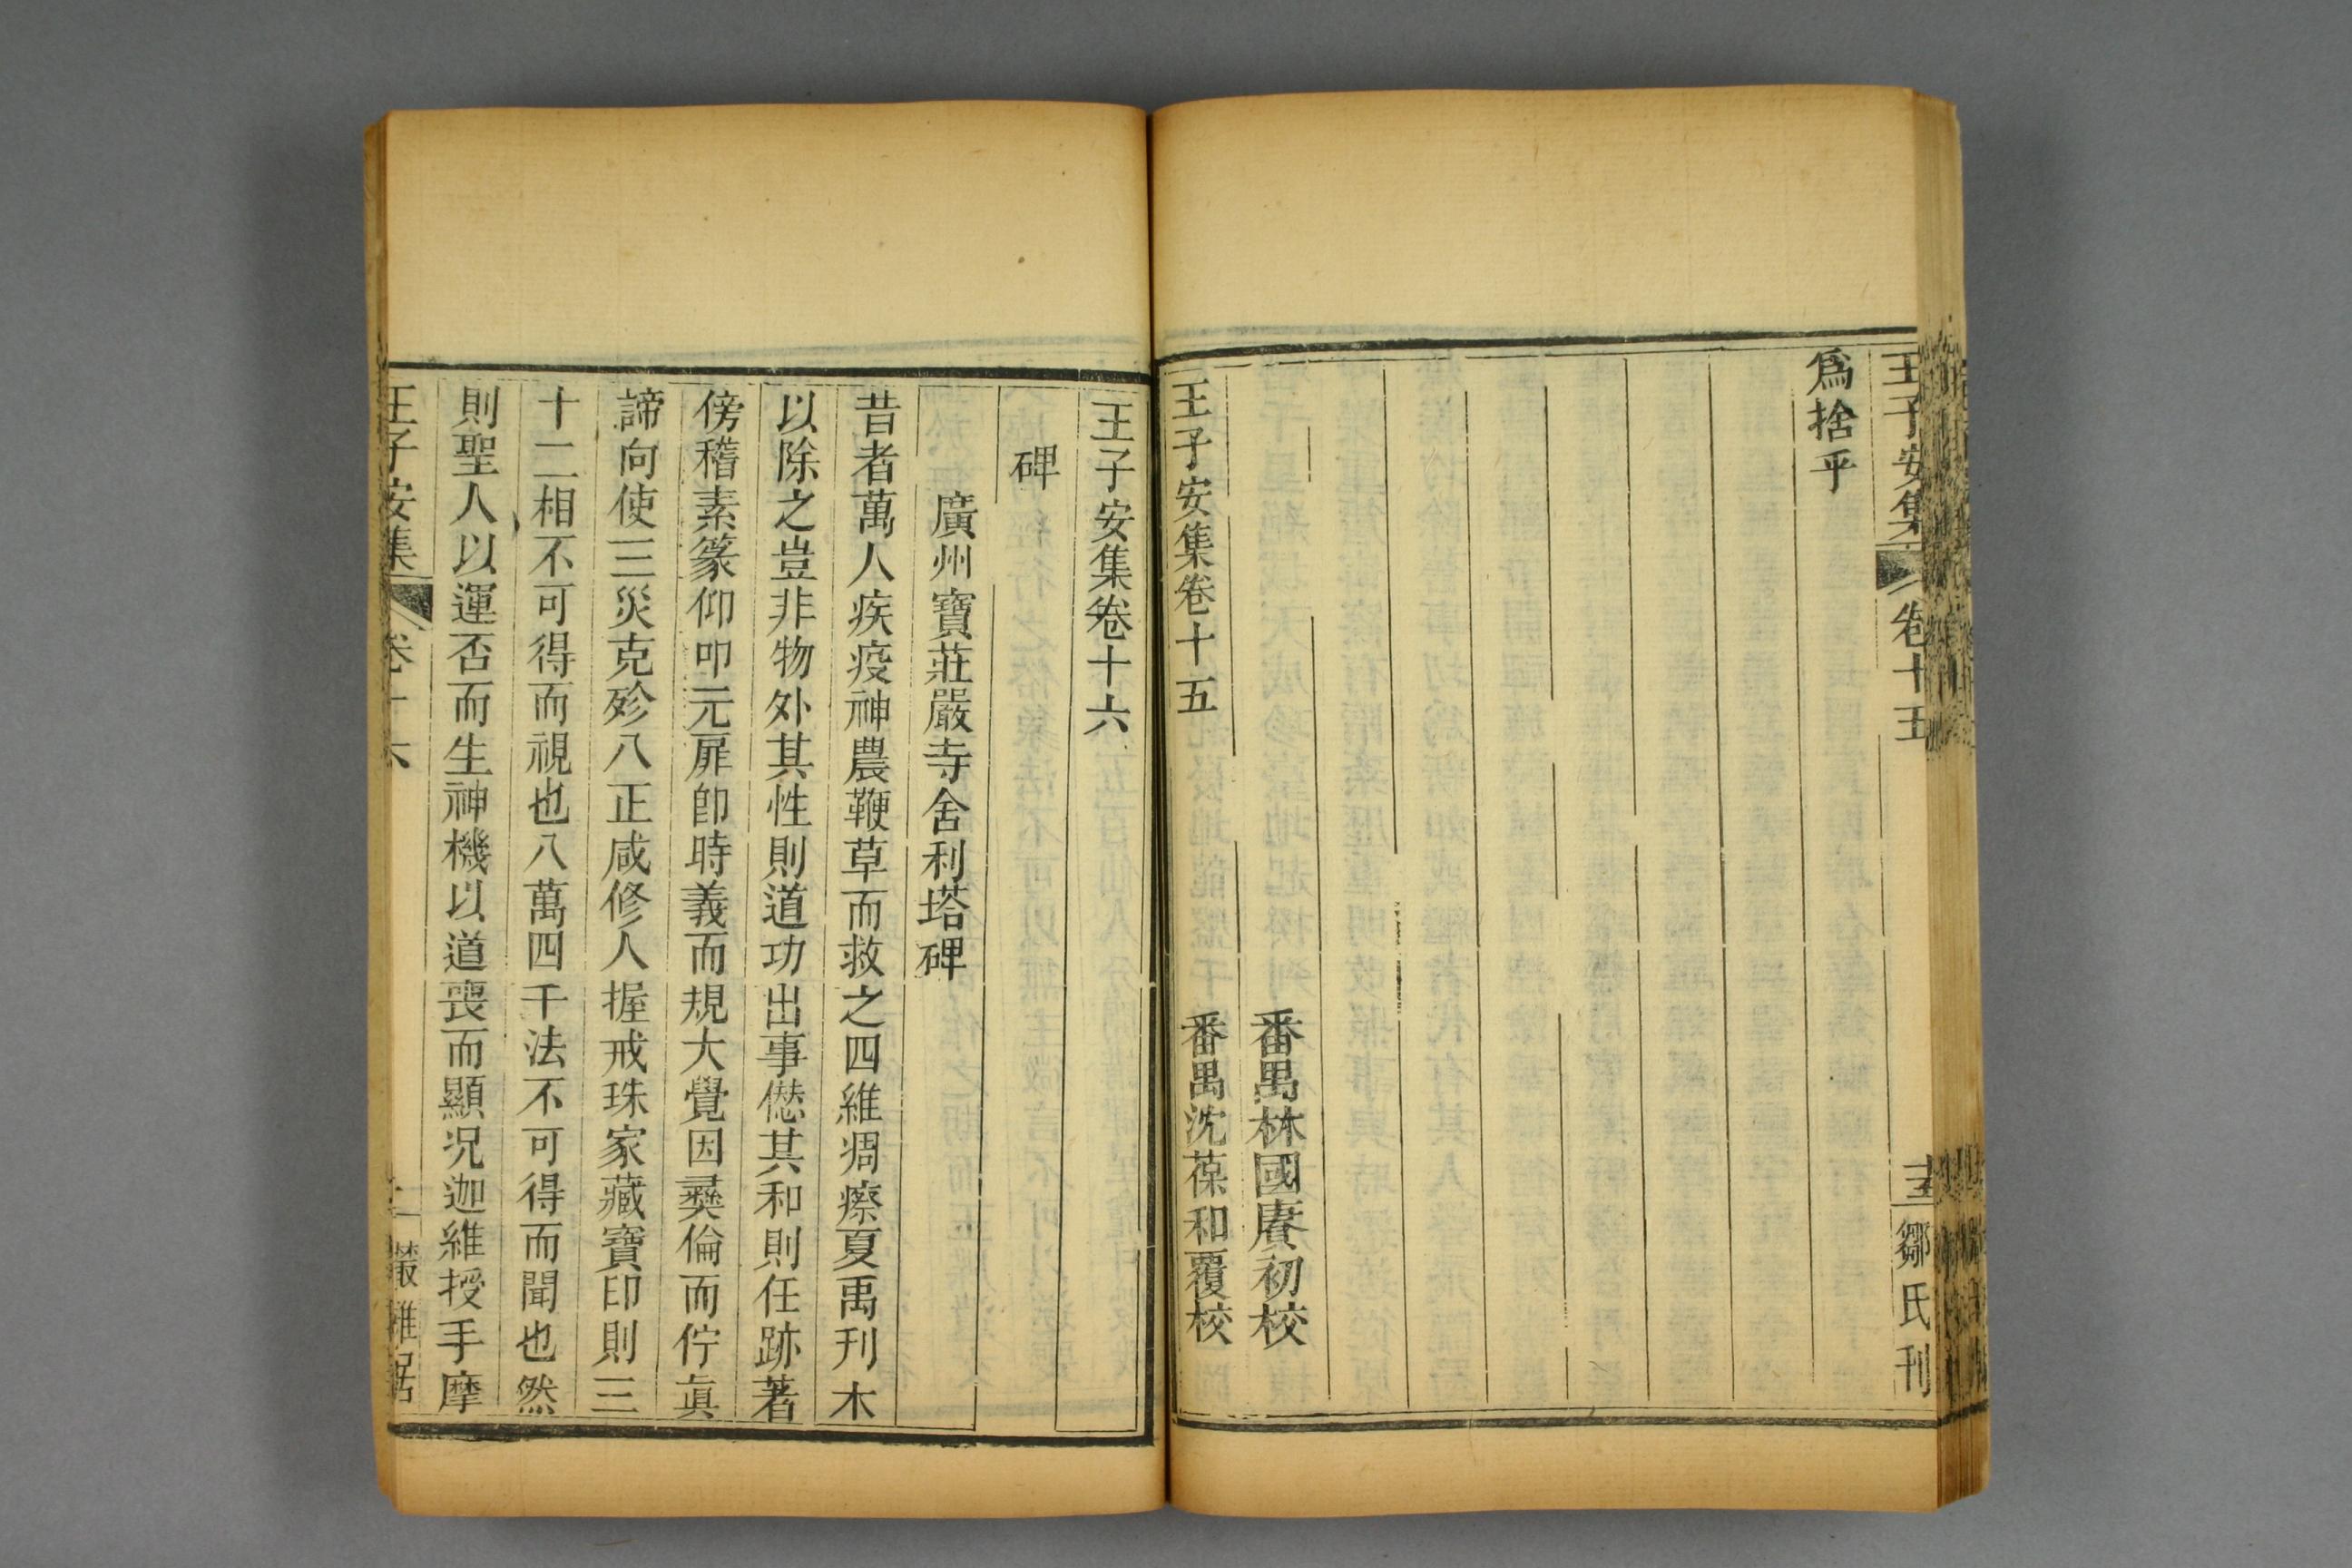 王子安集
卷十五
鄒氏刊
爲捨乎
番禺林國賡初校
番禺沈葆和覆校
王子安集卷十五
王子安集卷十六
碑
廣州寶莊嚴寺舍利塔碑
昔者萬人疾疫神農鞭草而救之四維凋瘵夏禹刋木
以除之豈非物外其性則道功出事僁其和則任跡著
傍稽素篆仰叩元扉卽時義而規大覺因彛倫而佇眞
諦向使三災克殄八正咸修人握戒珠家藏寶印則三
十二相不可得而視也八萬四千法不可得而聞也然
則聖人以運否而生神機以道喪而顯况迦維授手摩
王子安集
卷十六